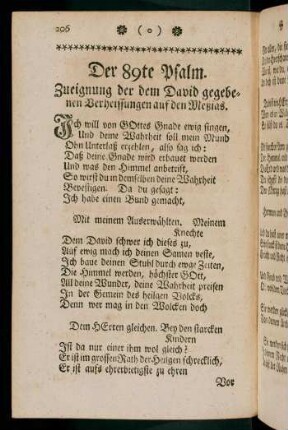 206 ❀ ( o ) ❀
Der 89te Psalm.
Zueignung der dem David gegebe-
nen Verheissungen auf den Meßias.
Ich will von GOttes Gnade ewig singen,
Und deine Wahrheit soll mein Mund
Ohn Unterlaß erzehlen, also sag ich:
Daß deine Gnade wird erbauet werden
Und was den Himmel anbetrift,
So wirst du in demselben deine Wahrheit
Bevestigen. Da du gesagt:
Ich habe einen Bund gemacht,
Mit meinem Auserwählten. Meinem
Knechte
Dem David schwer ich dieses zu,
Auf ewig mach ich deinen Samen veste,
Ich baue deinen Stuhl durch ewge Zeiten,
Die Himmel werden, höchster GOtt,
All deine Wunder, deine Wahrheit preisen
In der Gemein des heilgen Volcks,
Denn wer mag in den Wolcken doch
Dem HErrn gleichen. Bey den starcken
Kindern
Ist da nur einer ihm wol gleich?
Er ist im grossen Rath der Heilgen schrecklich,
Er ist aufs ehrerbietigste zu ehren
Vor